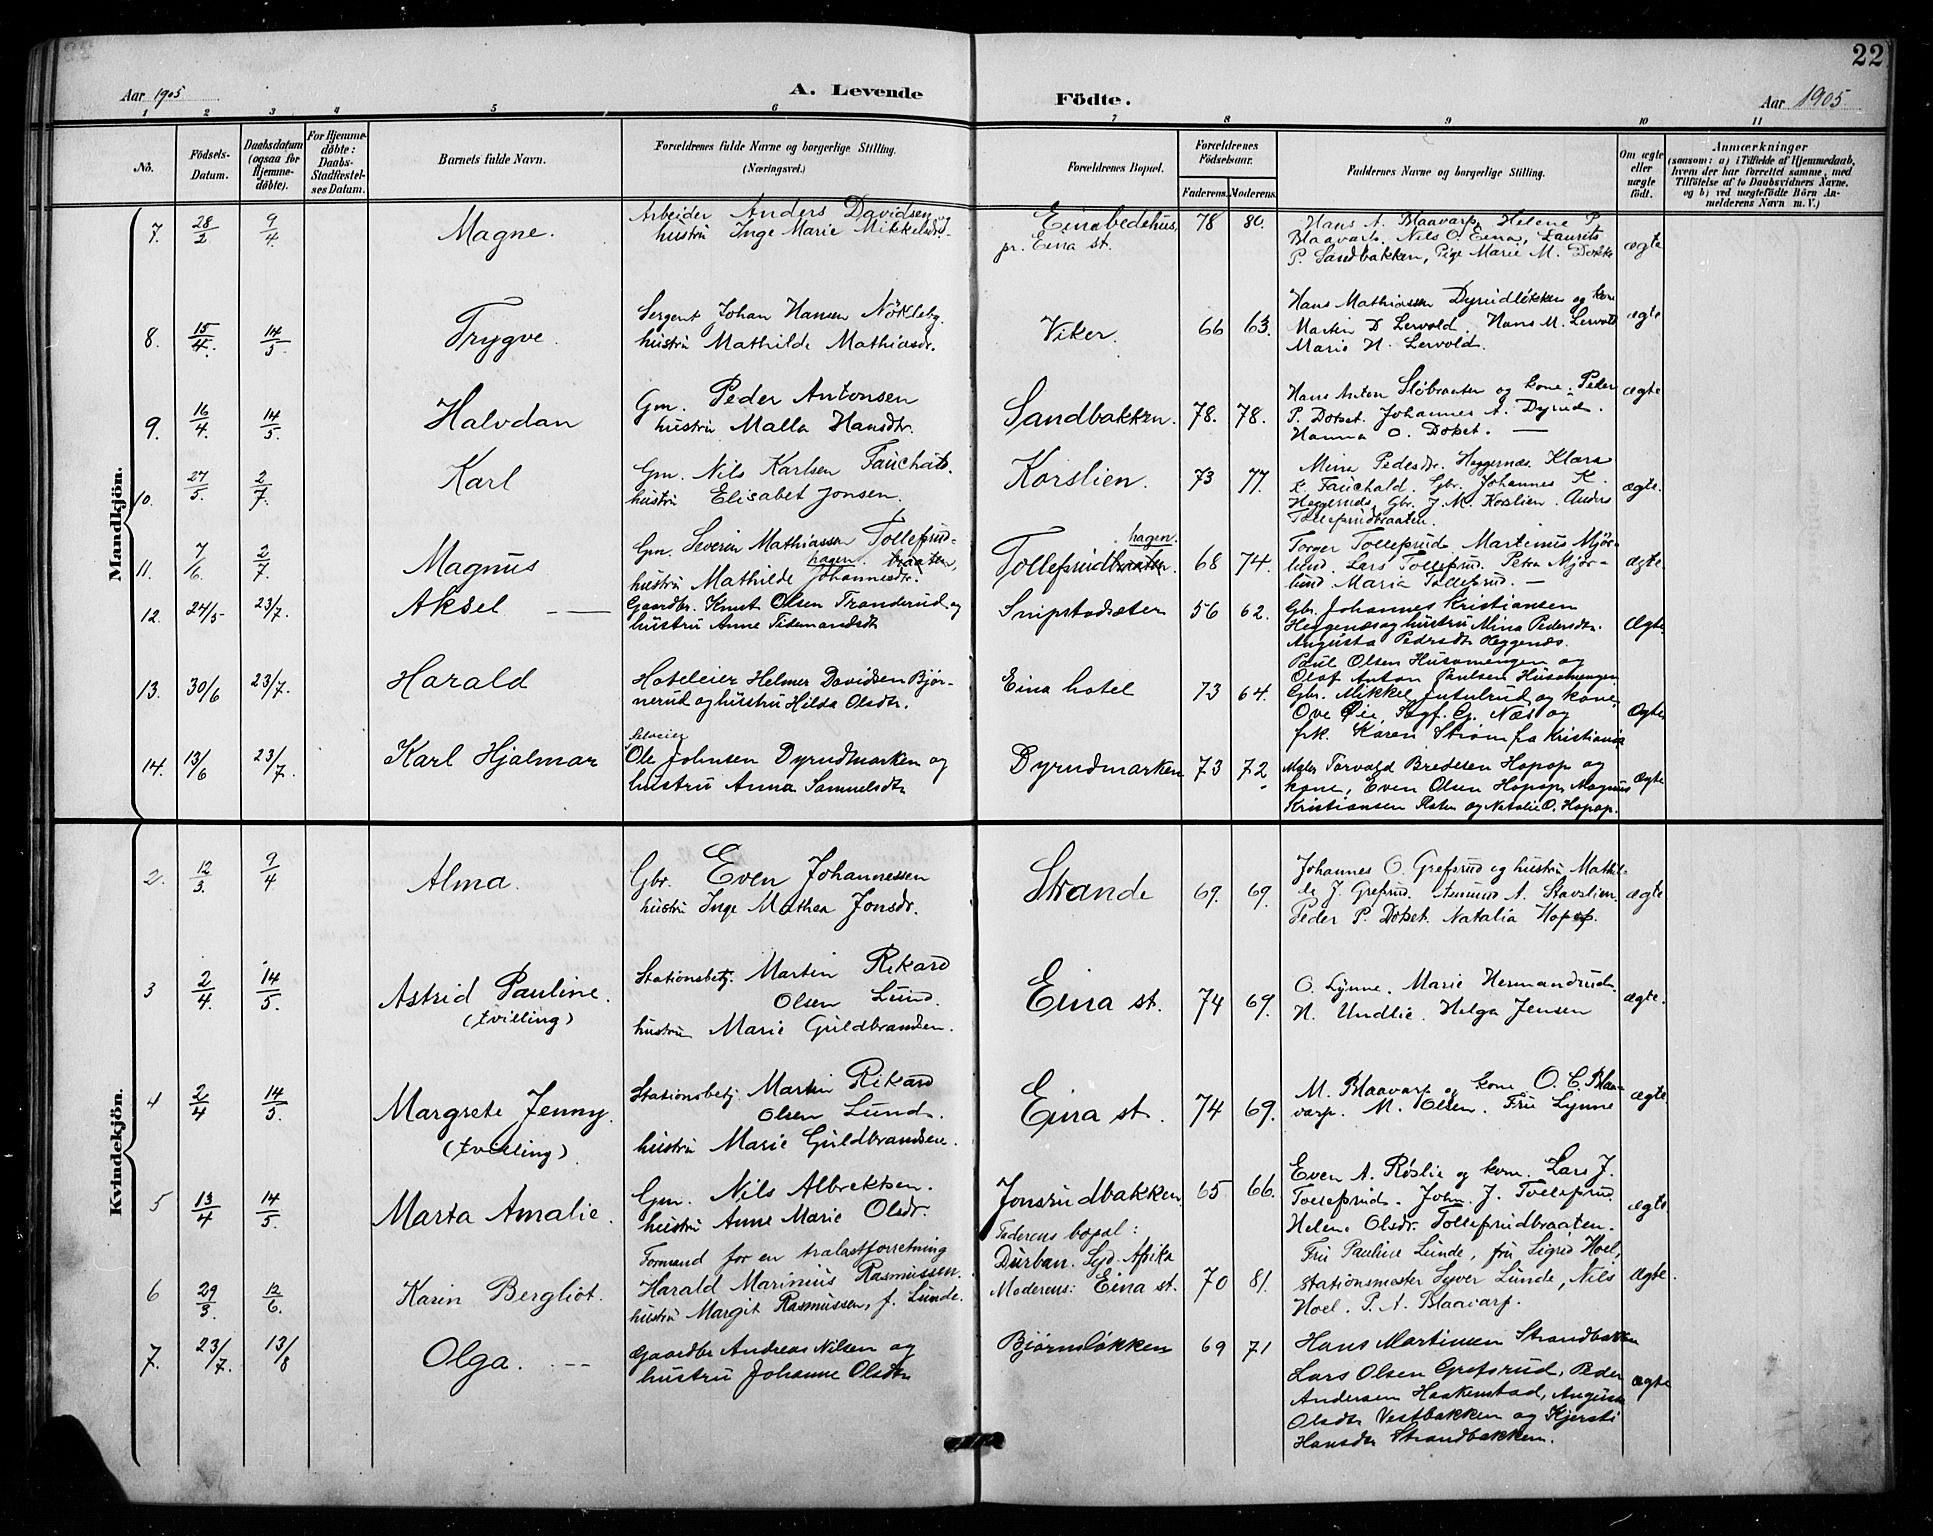 22
Aar 1905
A. Levende
Födte.
Aar 1905.
1 2 3 4 5 6 7 8 9 10 11
No.
Födsels-Datum.
Daabsdatum (ogsaa for Hjemmedöbte).
For Hjemmedöbte: Daabs-Stadfæstelses Datum.
Barnets fulde Navn.
Forældrenes fulde Navne og borgerlige Stilling. (Næringsvei.)
Forældrenes Bopæl.
Forældrenes Födselsaar.
Faderens. Moderens.
Faddernes Navne og borgerlige Stilling.
Om ægte eller uægte födt.
Anmærkninger
(saasom: a) i Tilfælde af Hjemmedaab,
hvem der har forrettet samme, med
Tilföielse af to Daabsvidners Navne,
og b) ved uægtefödte Börn Anmelderens Navn m. V.)
Mandkjön.
7. 28/2 9/4 Magne.
Arbeider Anders Davidsen og
hustru Inge Marie Mikkelsdr.
Eina bedehus,
pr. Eina st.
78 80.
Hans A. Blaavarp, Helene P.
Blaavarp. Nils O. Eina, Laurits
P. Sandbakken, Pige Marie M.
ægte
8. 15/4. 14/5. Trygve.
Sergent Johan Hansen Nökleby.
hustru Mathilde Mathiasdr.
Viker.
66 63.
Hans Mathiassen Dyrudløkken og kone
Martin D. Lervold. Hans M. Lervold
Marie H. Lervold.
ægte
9. 16/4. 14/5. Halvdan
Gm. Peder Antonsen
hustru Malla Hansdtr.
Sandbakken.
78. 78.
Hans Anton Slöbraaten og kone. Peder
P. Dokset. Johannes A. Dyrud.
Hanna O. Dokset. —
ægte
10. 27/5. 2/7. Karl
Gm. Nils Karlsen Fauchald.
hustru Elisabet Jonsen.
Korslien.
73 77.
Mina Pedersdr. Heggernæs. Klara
K. Fauchald. Gbr. Johannes K.
Heggernæs, Gbr. J. M. Korslien. Anders
Tollefsrudbraaten.
ægte.
11. 7/6. 2/7. Magnus
Gm. Severin Mathiassen Tollefsrud-
hagen. braaten,
hustru Mathilde Johannesdr.
hagen.
Tollefsrudbraaten.
68 74.
Torger Tollefsrud. Martinus Mjør-
lund. Lars Tollefsrud. Petra Mjør-
lund Maria Tollefsrud. —
ægte.
12. 24/5 23/7. Aksel —
Gaardbr. Knut Olsen Tranderud og
hustru Anne Tidemandsdtr
Snipstadsæter
56 62.
Gbr. Johannes Kristiansen
Heggenæs og hustru Mina Pedersdtr.
Augusta Pedersdtr Heggenæs.
Paul Olsen Husomengen og
Olaf Anton Paulsen Husomengen
Ægte
13. 30/6 23/7. Harald
Hoteleier Helmer Davidsen Bjør-
nerud og hustru Hilda Olsdtr.
Eina hotel
73 64.
Gbr. Mikkel Jutulrud og kone,
Ove Øie, Fogf. G. Næs og
frk. Karen Strøm fra Kristiania
Ægte
14. 13/6 23/7. Karl Hjalmar
Selveier
Ole Johnsen Dyrudmarken og
hustru Anna Samuelsdtr
Dyrudmarken
73 72
Maler Torvald Bredesen Hopop og
kone, Even Olsen Hopop, Magnus
Kristiansen Roten og Natalie O. Hopop.
Ægte
Kvindekjön.
2. 12/3. 9/4 Alma.
Gbr. Even Johannessen
hustru Inge Mathea Jonsdr.
Strande
69. 69.
Johannes O. Grefsrud og hustru Mathil-
de J. Grefsrud. Amund A. Stavslien.
Peder P. Dokset. Natalia Hopop.
ægte
3 2/4. 14/5. Astrid Pauline.
(tvilling)
Stationsbetj. Martin Rikard
Olsen Lund.
hustru Marie Guldbrandsen.
Eina st.
74 69.
O. Lynne. Marie Hermandrud.
N. Undlie. Helga Jensen
ægte.
4 2/4 14/5. Margrete Jenny.
(tvilling)
Stationsbetj. Martin Rikard
Olsen Lund.
hustru Marie Guldbrandsen.
Eina st.
74 69.
M. Blaavarp og kone O. C. Blaa-
varp. M. Olsen. Fru Lynne
ægte.
5 13/4 14/5. Marta Amalie.
Gm. Nils Albrektsen.
hustru Anne Marie Olsdr.
Jonsrudbakken
65 66.
Even A. Røslie og kone. Lars J.
Tollefsrud. John J. Tollefsrud
Helene Olsdr. Tollefsrudbraaten.
ægte.
6 29/3. 12/6. Karin Bergliot.
Formand for en tralastforretning
Harald Marinius Rasmussen.
hustru Margit Rasmussen, f. Lunde.
Faderens bopæl:
Durban. Syd. Afrika
Moderens: Eina st.
70 81.
Fru Pauline Lunde, fru Sigrid Hoel,
stationsmester Syver Lunde, Nils
Hoel. P. A. Blaavarp.
Ægte.
7. 23/7. 13/8 Olga. —
Gaardbr Andreas Nilsen og
hustru Johanne Olsdtr
Bjørnsløkken
69 71
Hans Martinsen Strandbakken
Lars Olsen Grefsrud, Peder
Andersen Haakenstad, Augusta
Olsdtr Vestbakken og Kjersti
Hansdtr Strandbakken.
ægte